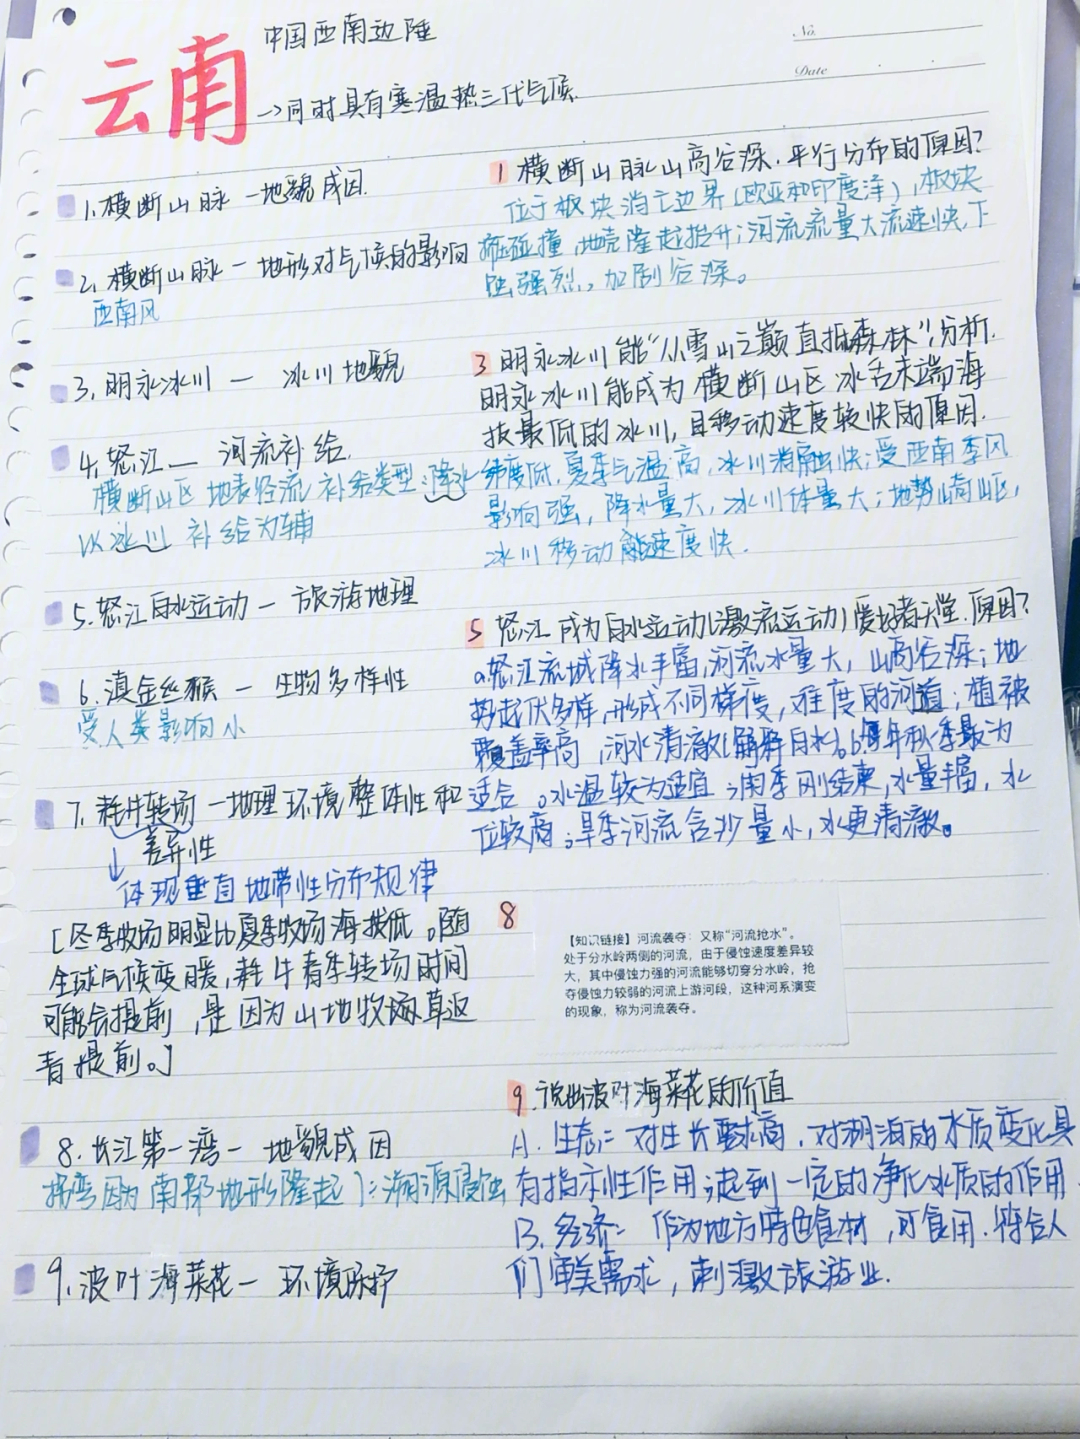 云南
中国西南边陲
No.
Date
→同时具有寒温热三代气候.
1.横断山脉 — 地貌成因.
2.横断山脉 — 地形对气候的影响
西南风
3.明永冰川 — 冰川地貌
4.怒江 — 河流补给.
横断山区 地表径流 补给类型:降水
以冰川 补给为辅
5.怒江自水运动 — 旅游地理
6.滇金丝猴 — 生物多样性
受人类影响小
7.牦牛转场 — 地理环境整体性和
差异性
↓体现垂直地带性分布规律
[冬季牧场明显比夏季牧场海拔低。随
全球气候变暖,牦牛春季转场时间
可能会提前,是因为山地牧场草返
青提前。]
8.长江第一湾 — 地貌成因
拐弯因为南部地形隆起):溯源侵蚀
9.波叶海菜花 — 环境保护
1 横断山脉山高谷深.平行分布的原因?
位于板块消亡边界(欧亚和印度洋),板块
碰撞,地壳隆起抬升;河流流量大流速快,下
蚀强烈,加剧谷深。
3 明永冰川能“从雪山之巅直抵森林”,分析.
明永冰川能成为横断山区冰舌末端海
拔最低的冰川,且移动速度较快的原因.
纬度低,夏季气温高,冰川消融快;受西南季风
影响强,降水量大,冰川体量大;地势崎山区,
冰川移动速度快.
5 怒江成为自水运动(激流运动)爱好者天堂.原因?
a.怒江流域降水丰富,河流水量大,山高谷深;地
势起伏多样,形成不同梯度,难度的河道;植被
覆盖率高,河水清澈(解释自水)。b.每年秋季最为
适合。水温较为适宜;雨季刚结束,水量丰富,水
位较高;旱季河流含沙量小,水更清澈。
8
【知识链接】河流袭夺:又称“河流抢水”。
处于分水岭两侧的河流,由于侵蚀速度差异较
大,其中侵蚀力强的河流能够切穿分水岭,抢
夺侵蚀力较弱的河流上游河段,这种河系演变
的现象,称为河流袭夺。
9.说出波叶海菜花的价值
A.生态:对生长要求高,对湖泊的水质变化具
有指示性作用;起到一定的净化水质的作用
B.经济:作为地方特色食材,可食用.符合人
们审美需求,刺激旅游业.